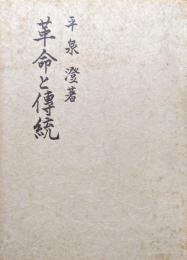 平泉 澄著
革命と傳統